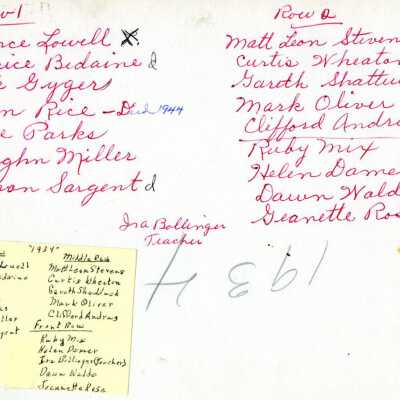 w-1
nce Lowell X.
rice Bedaine d
k Gygers
n Rice - Died 1944
e Parks
ughn Miller
on Sargent d
Row 2
Matt Leon Steven
Curtis Wheaton
Gareth Shattu
Mark Oliver
Clifford Andru
Ruby Mix
Helen Damer
Dawn Wald
Geanette Ros
Ira Bollinger
Teacher
1934
"1934"
owell
edaine
s
ks
iller
rgent
Middle Row
Matt Leon Stevens
Curtis Wheaton
Gareth Shadduck
Mark Oliver
Clifford Andrus
Front Row
Ruby Mix
Helen Damer
Ira Bollinger (Teacher)
Dawn Waldo
Jeannette Rose